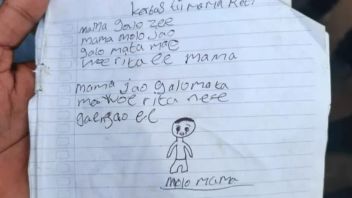 kertas tii mama reti
mama galo zee
mama molo jao
galo mata mae
nee rita ee mama
mama jao galo mata
mae woe rita nese
gae ngao ee
molo mama